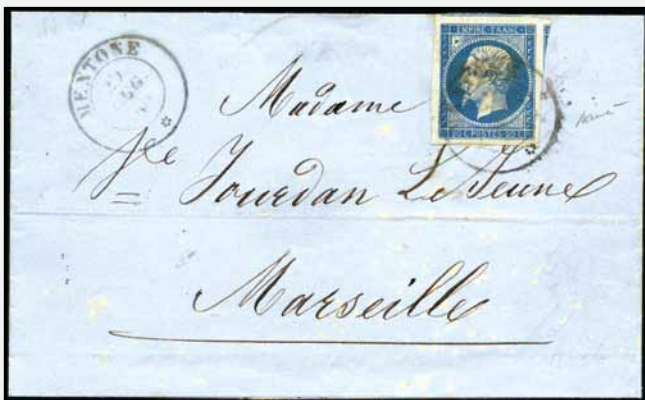 MENTONE
LUG.
EMPIRE FRANC.
20 C. POSTES 20 C.
Madame
Jourdan Lejeune
Marseille